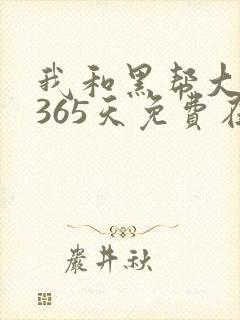 我和黑帮大
365天免費在
嚴井秋